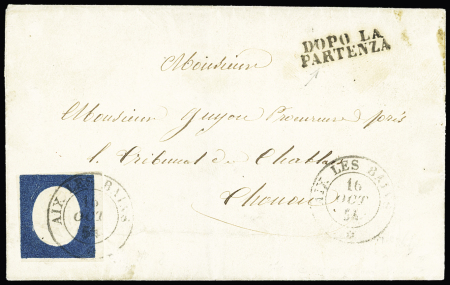 DOPO LA
PARTENZA
Monsieur
Monsieur Guyon Procureur près
le Tribunal de
AIX LES BAINS
16
OCT
54
AIX LES BAINS
16
OCT
54